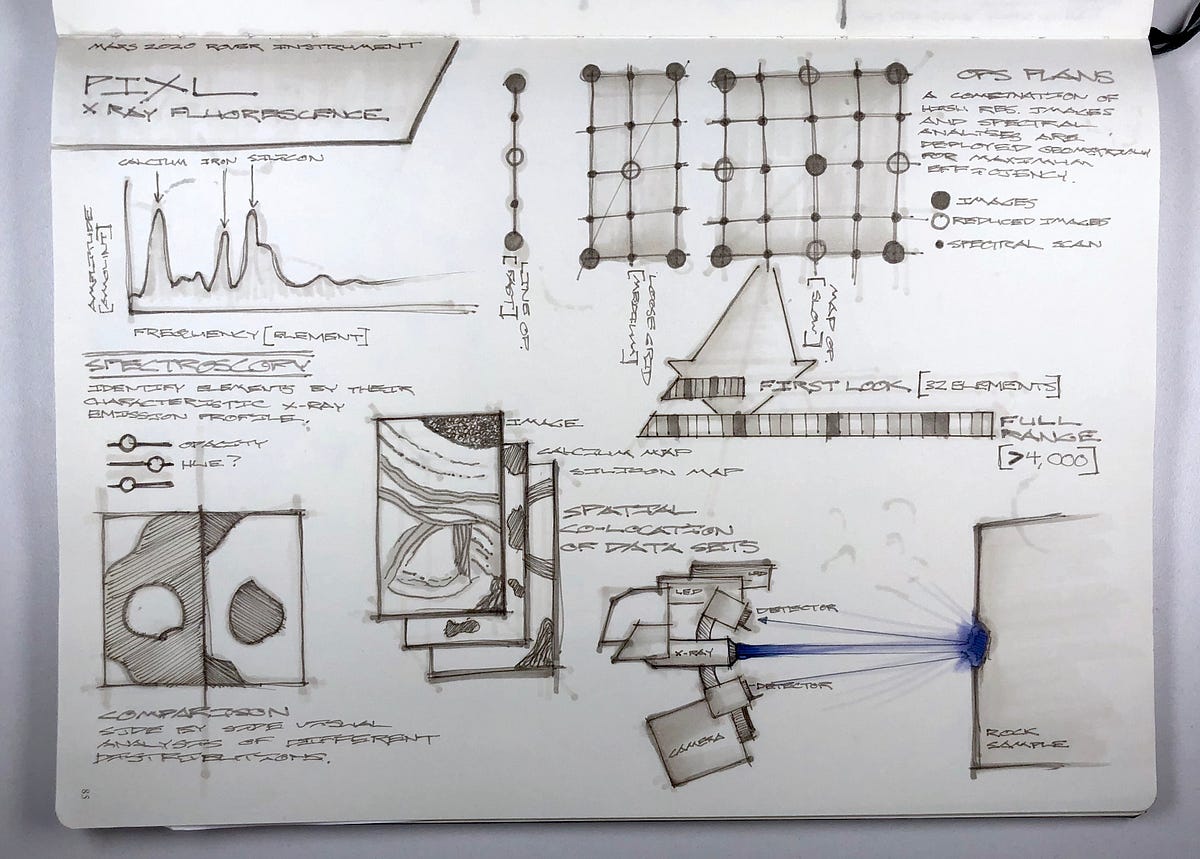 MARS 2020 ROVER INSTRUMENT
PIXL
X RAY FLUORESCENCE
CALCIUM IRON SILICON
AMPLITUDE
[AMOUNT]
FREQUENCY [ELEMENT]
SPECTROSCOPY
IDENTIFY ELEMENTS BY THEIR
CHARACTERISTIC X-RAY
EMISSION PROFILE.
OPACITY
HUE?
COMPARISON
SIDE BY SIDE VISUAL
ANALYSIS OF DIFFERENT
DISTRIBUTIONS.
85
IMAGE
CALCIUM MAP
SILICON MAP
SPATIAL
CO-LOCATION
OF DATA SETS
LINE OF.
[FAST]
LOOSE GRID
[MEDIUM]
MAP OF.
[SLOW]
OPS PLANS
A COMBINATION OF
HIGH RES. IMAGES
AND SPECTRAL
ANALYSES ARE
DEPLOYED GEOMETRICALLY
FOR MAXIMUM
EFFICIENCY.
IMAGES
REDUCED IMAGES
SPECTRAL SCAN
FIRST LOOK [32 ELEMENTS]
FULL
RANGE
[>4,000]
LED
LED
DETECTOR
X-RAY
DETECTOR
CAMERA
ROCK
SAMPLE